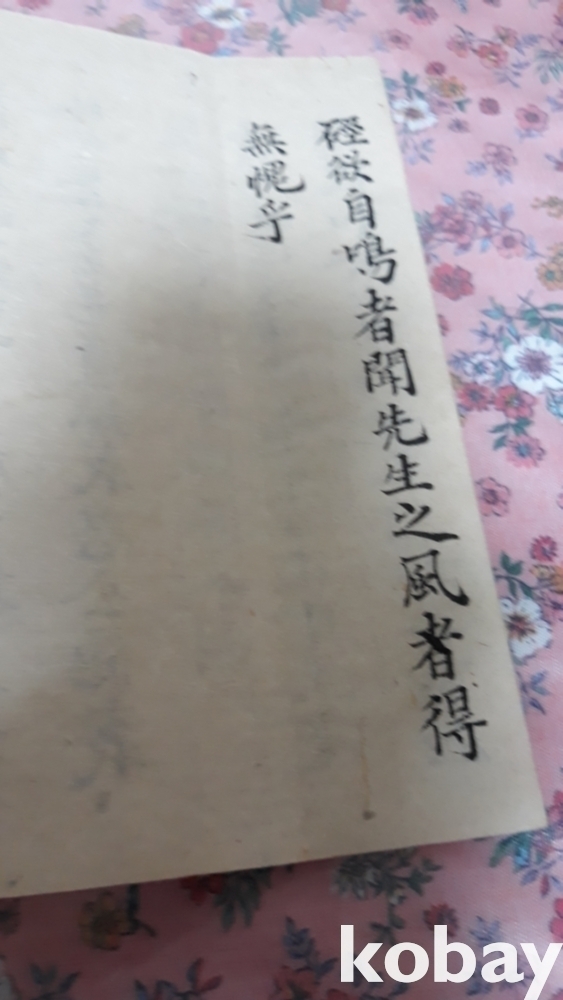 硜欲自鳴者聞先生之風者得
無愧乎
kobay